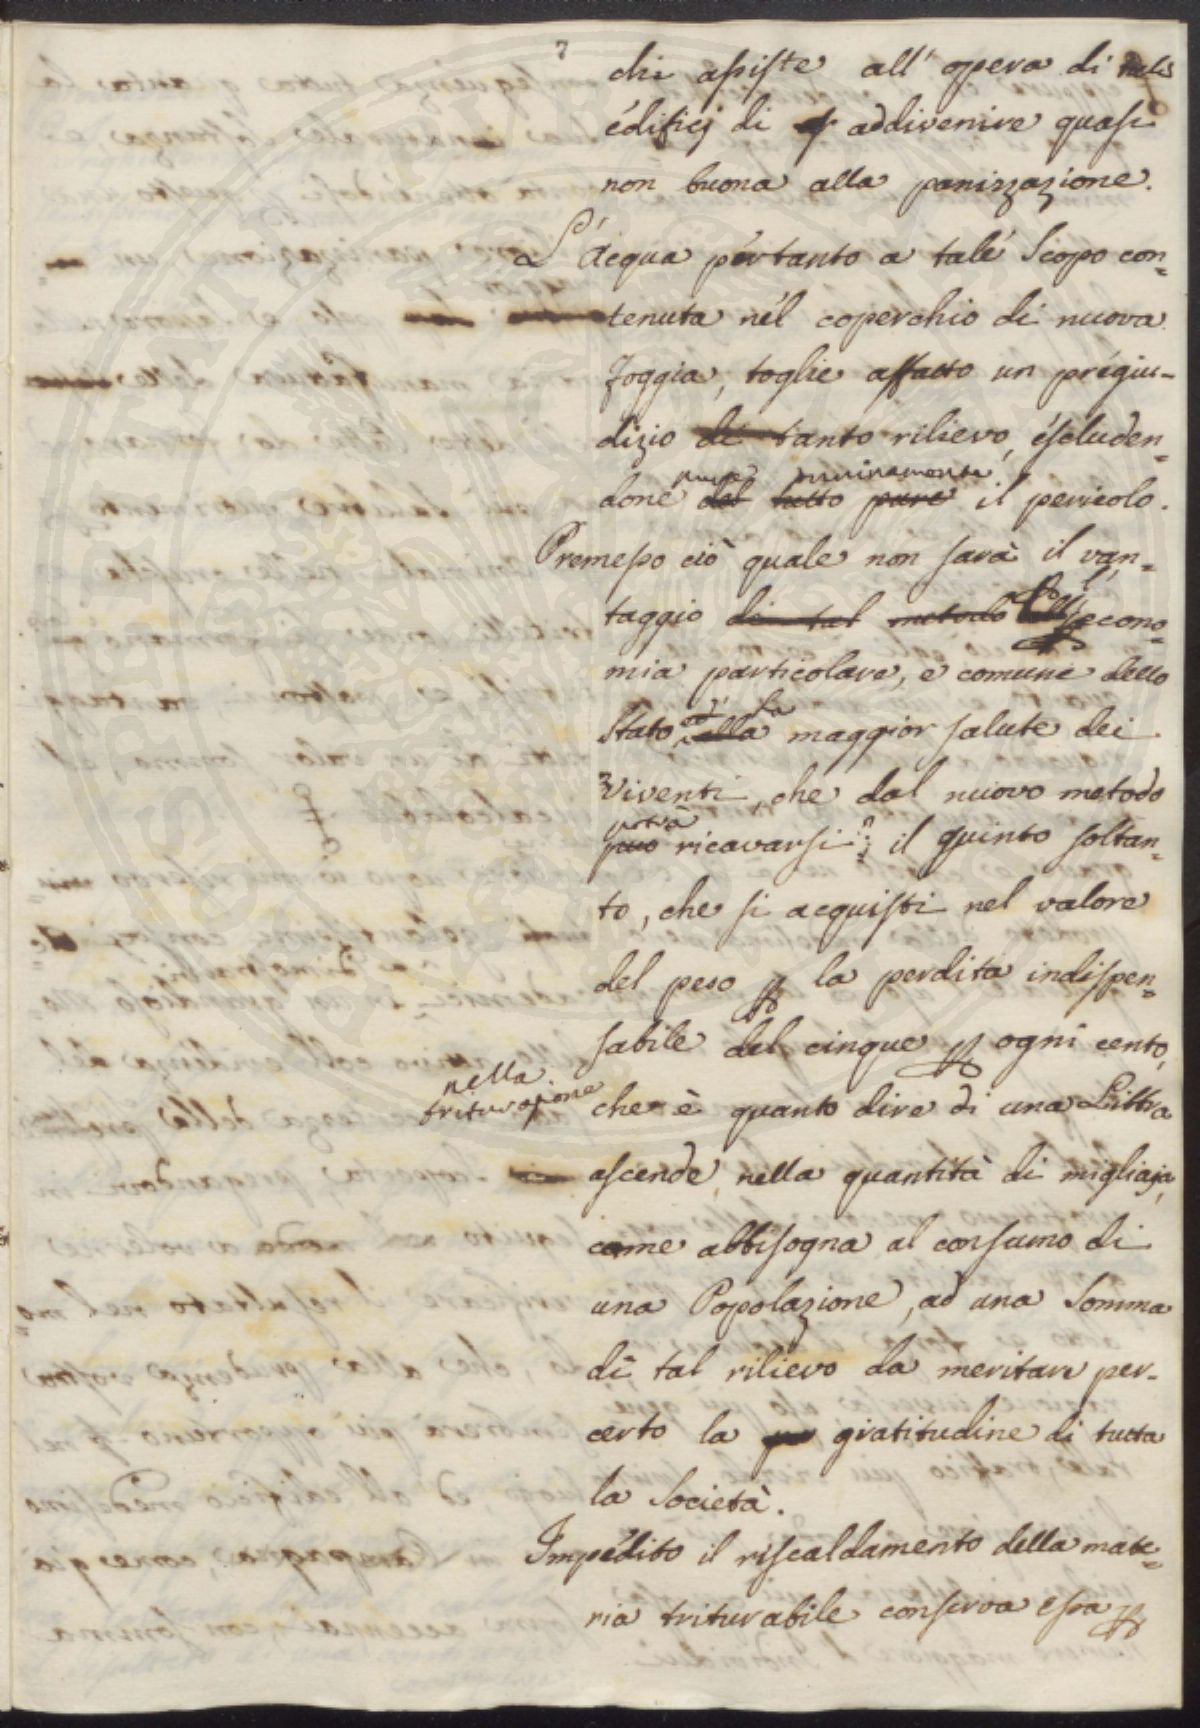 7
chi assiste all' opera di tali
edificj di addivenire quasi
non buona alla panizzazione.
L' acqua pertanto a tale Scopo con=
tenuta nel coperchio di nuova
foggia, toglie affatto un pregiu-
dizio di tanto rilievo, escluden=
done del tutto pure il pericolo.
Premesso ciò quale non sarà il van=
taggio di tal metodo econo=
mia particolare, e comune dello
Stato, alla maggior salute dei
Viventi, che dal nuovo metodo
potrà
può ricavarsi; il quinto soltan=
to, che si acquisti nel valore
del peso p la perdita indispen=
sabile del cinque p ogni cento,
nella
triturazione
che è quanto dire di una Libbra
ascende nella quantità di migliaja,
come abbisogna al consumo di
una Popolazione, ad una Somma
di tal rilievo da meritare per-
certo la gratitudine di tutta
la Società.
Impedito il riscaldamento della mate=
ria triturabile conserva essa p